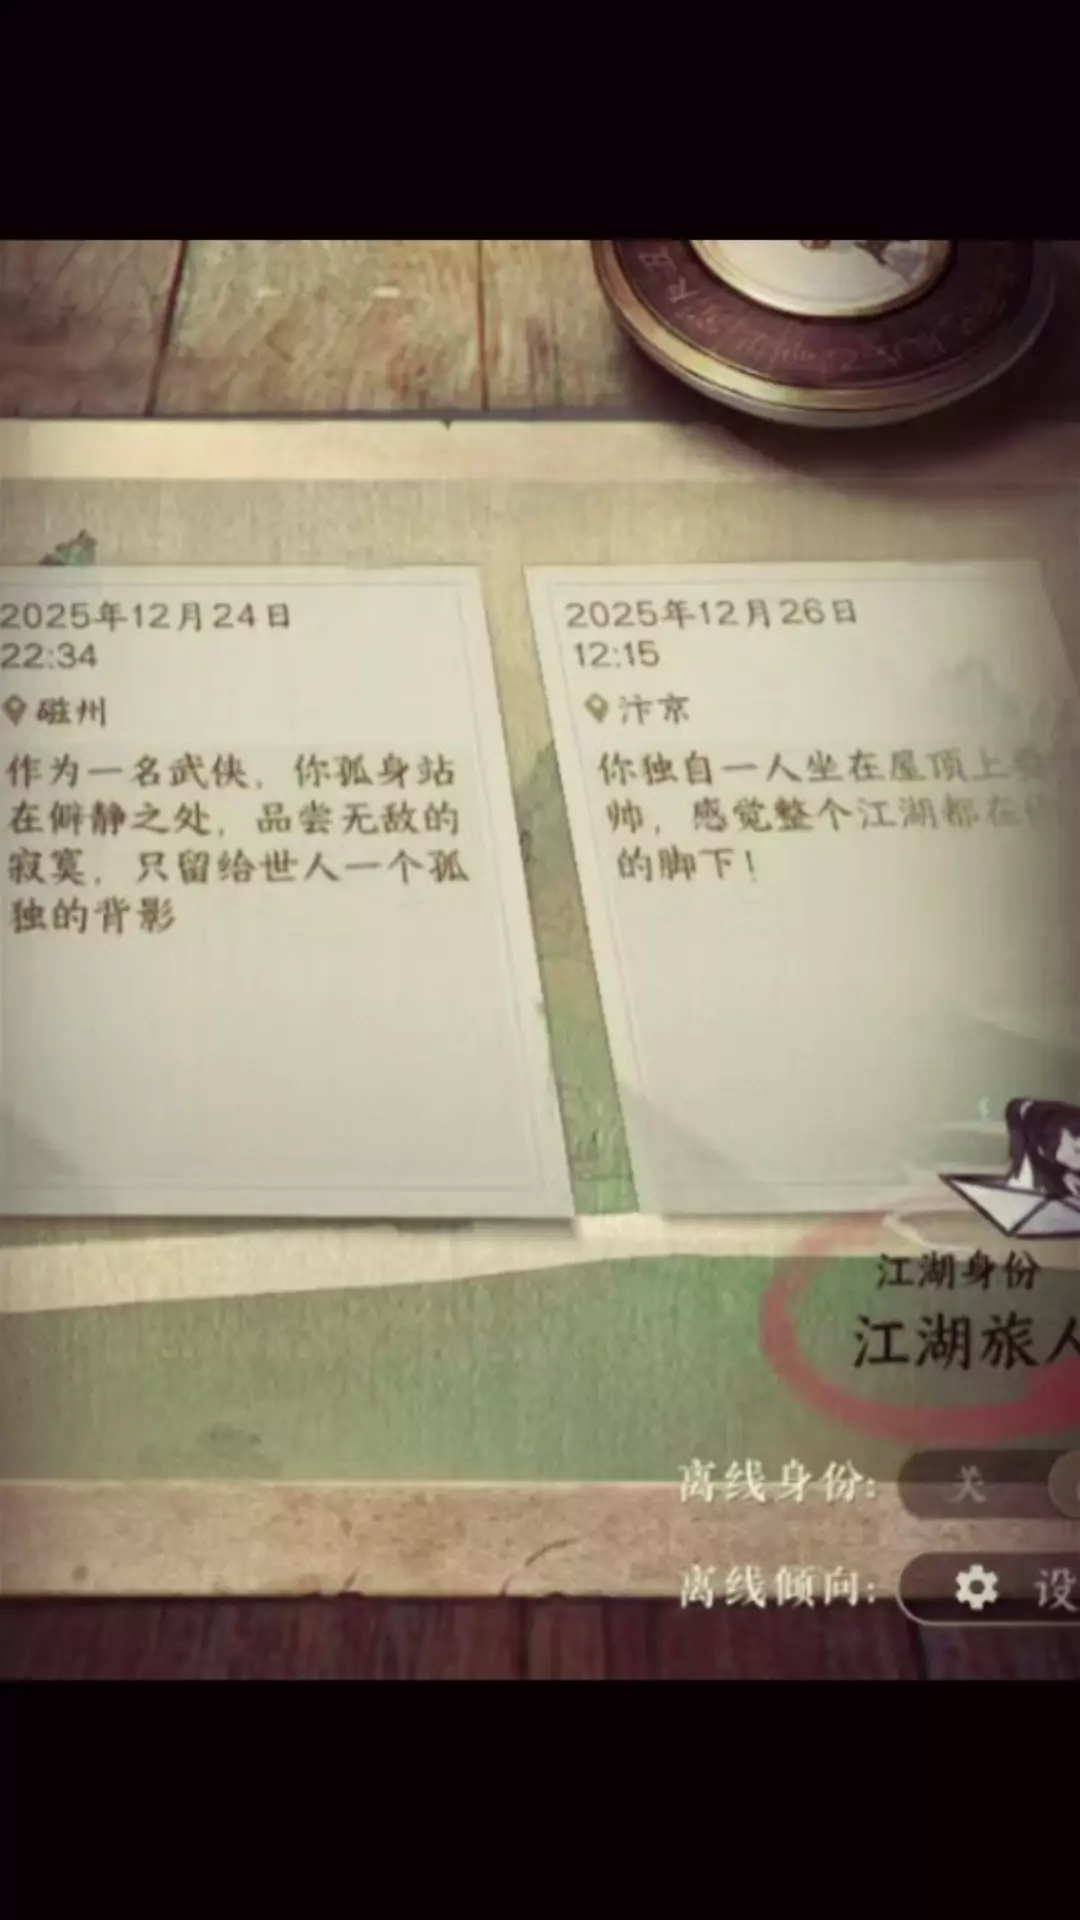 2025年12月24日
22:34
磁州
作为一名武侠，你孤身站
在僻静之处，品尝无敌的
寂寞，只留给世人一个孤
独的背影
2025年12月26日
12:15
汴京
你独自一人坐在屋顶上
帅，感觉整个江湖都在
的脚下！
江湖身份
江湖旅人
离线身份：
关
离线倾向：
设